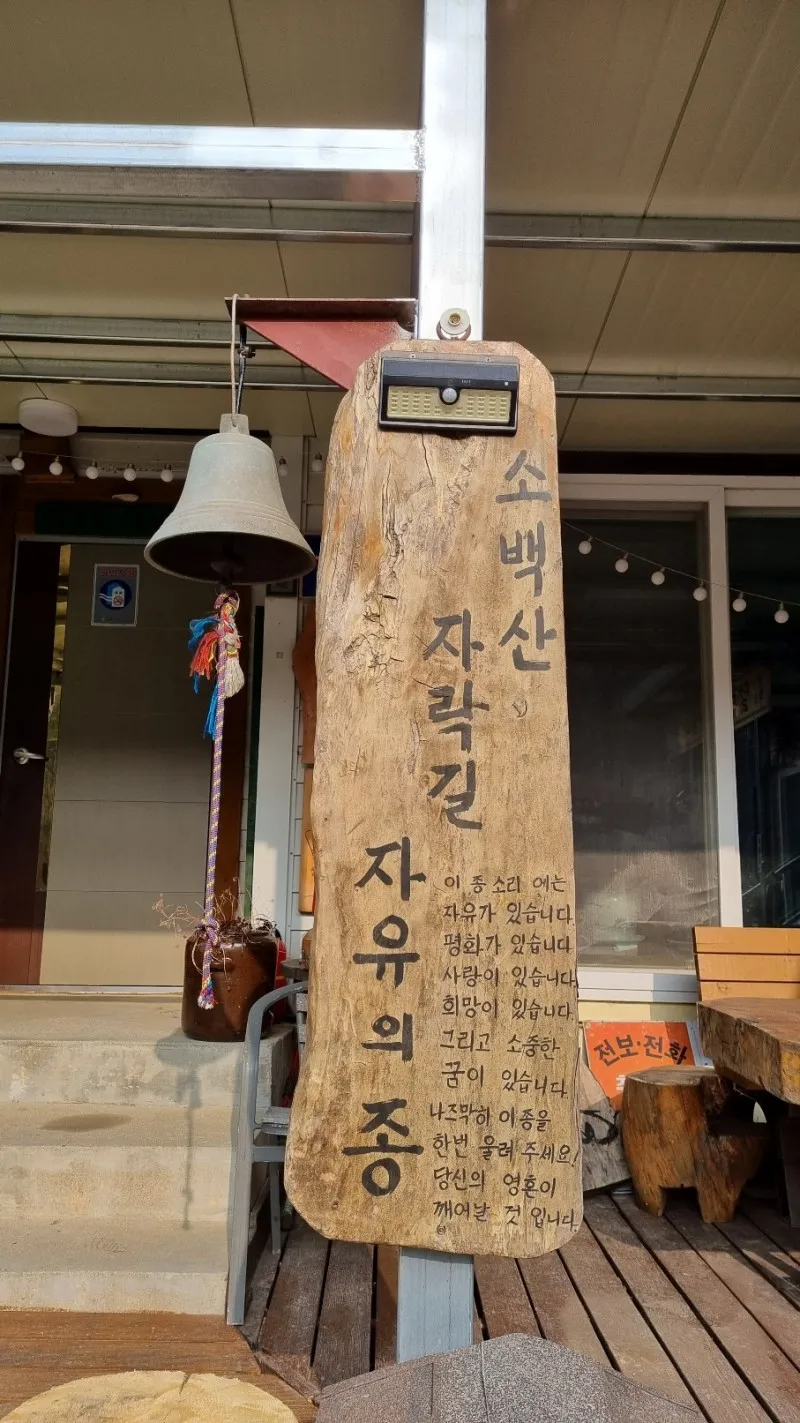 소백산
자락길
자유의 종
이 종소리 에는
자유가 있습니다.
평화가 있습니다.
사랑이 있습니다.
희망이 있습니다.
그리고 소중한
꿈이 있습니다.
나즈막히 이 종을
한번 울려 주세요!
당신의 영혼이
깨어날 것 입니다.
전보·전화